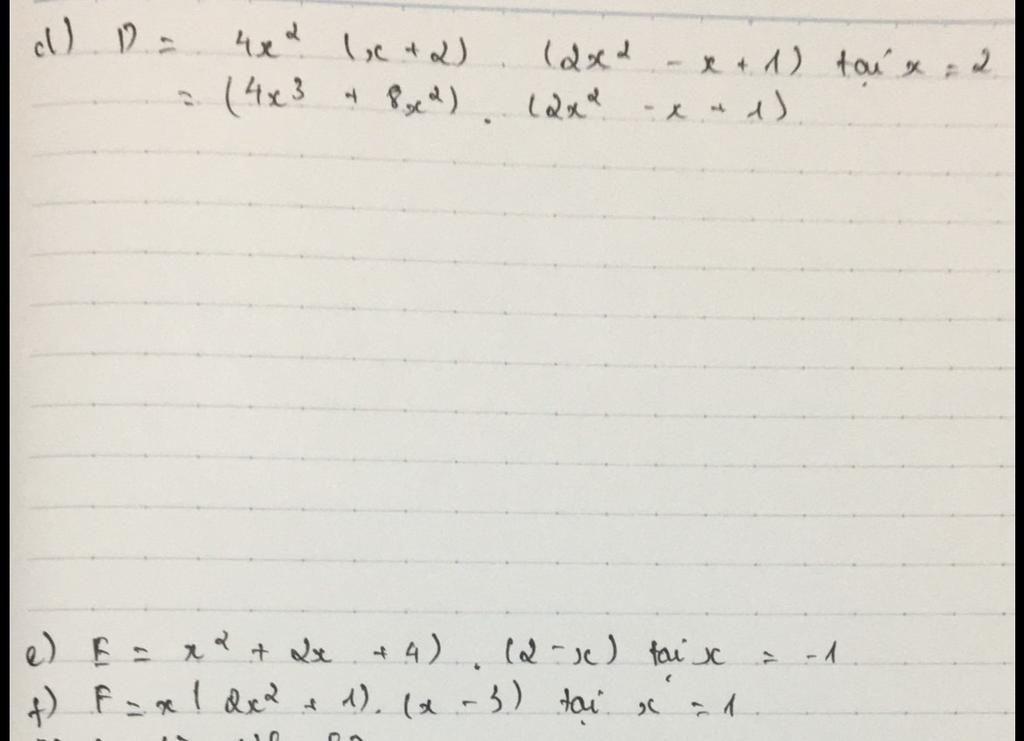 d) D = 4x² (x + 2) . (2x² - x + 1) tại x = 2
= (4x³ + 8x²) . (2x² - x + 1)
e) E = x² + 2x + 4) . (2 - x) tại x = -1
f) F = x( 2x² + 1). (x - 3) tại x = 1